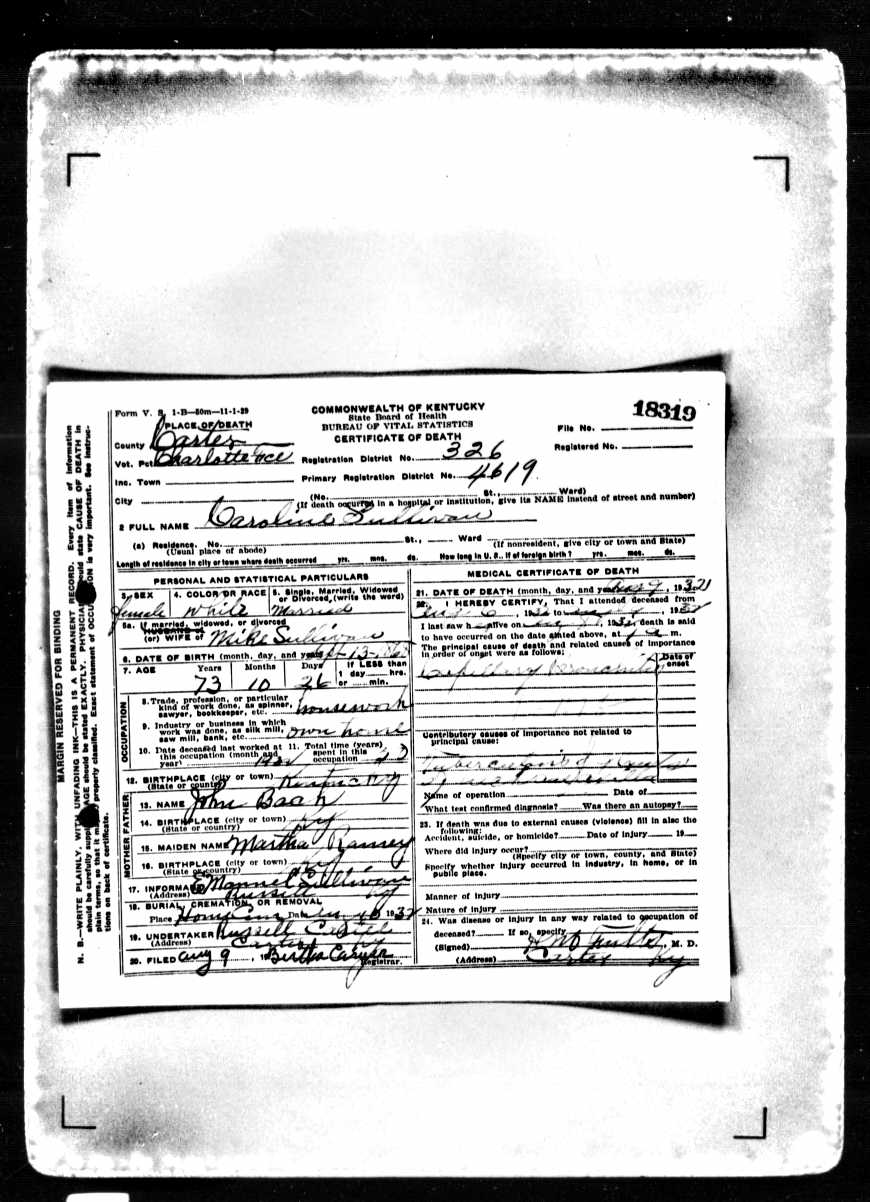 MARGIN RESERVED FOR BINDING
N. B.—WRITE PLAINLY, WITH UNFADING INK—THIS IS A PERMANENT RECORD. Every item of information
should be carefully supplied. AGE should be stated EXACTLY. PHYSICIANS should state CAUSE OF DEATH in
plain terms, so that it may be properly classified. Exact statement of OCCUPATION is very important. See instruc-
tions on back of certificate.
Form V. S. 1-B—50m—11-1-29
COMMONWEALTH OF KENTUCKY
State Board of Health
BUREAU OF VITAL STATISTICS
CERTIFICATE OF DEATH
18319
File No.
Registered No.
PLACE OF DEATH
County Carter
Vot. Pct. Charlotte
Inc. Town
City
Registration District No. 326
Primary Registration District No. 4619
(No. St., Ward)
(If death occurred in a hospital or institution, give its NAME instead of street and number)
2 FULL NAME Caroline Sullivan
(a) Residence. No. St., Ward
(Usual place of abode) (If nonresident, give city or town and State)
Length of residence in city or town where death occurred yrs. mos. ds. How long in U. S., if of foreign birth? yrs. mos. ds.
PERSONAL AND STATISTICAL PARTICULARS
3. SEX 4. COLOR OR RACE 5. Single, Married, Widowed or Divorced, (write the word)
female White Married
5a. If married, widowed, or divorced
HUSBAND of
(or) WIFE of Mike Sullivan
6. DATE OF BIRTH (month, day, and year) Sept 13
7. AGE Years Months Days If LESS than 1 day hrs. or min.
73 10 26
OCCUPATION
8. Trade, profession, or particular kind of work done, as spinner, sawyer, bookkeeper, etc. housework
9. Industry or business in which work was done, as silk mill, saw mill, bank, etc. own home
10. Date deceased last worked at this occupation (month and year)
11. Total time (years) spent in this occupation
12. BIRTHPLACE (city or town) Kentucky
(State or country)
FATHER
13. NAME John
14. BIRTHPLACE (city or town) Ky
(State or country)
MOTHER
15. MAIDEN NAME Martha Ramey
16. BIRTHPLACE (city or town) Ky
(State or country)
17. INFORMANT Sullivan
(Address) Russell Ky
18. BURIAL, CREMATION, OR REMOVAL
Place Date 10 1932
19. UNDERTAKER Russell
(Address) Carter Ky
20. FILED Aug 9, 19 Bertha
Registrar.
MEDICAL CERTIFICATE OF DEATH
21. DATE OF DEATH (month, day, and year) Aug 9, 1932
22. I HEREBY CERTIFY, That I attended deceased from
, 1932 to , 1932
I last saw h alive on , 1932, death is said
to have occurred on the date stated above, at m.
The principal cause of death and related causes of importance
in order of onset were as follows:
Date of onset
Capillary Bronchitis
Contributory causes of importance not related to
principal cause:
Tuberculosis
Name of operation Date of
What test confirmed diagnosis? Was there an autopsy?
23. If death was due to external causes (violence) fill in also the
following:
Accident, suicide, or homicide? Date of injury 19
Where did injury occur?
(Specify city or town, county, and State)
Specify whether injury occurred in industry, in home, or in
public place.
Manner of injury
Nature of injury
24. Was disease or injury in any way related to occupation of
deceased? If so, specify
(Signed) M. D.
(Address) Carter Ky